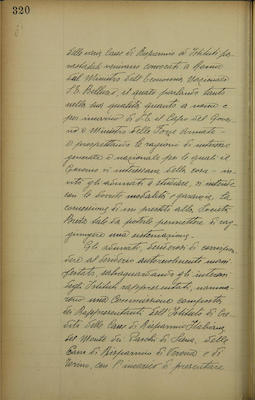 320
delle varie Casse di Risparmio ed Istituti pa-
rastatali vennero convocati a Roma
dal Ministro dell'Economia Nazionale
S. E. Belluzzo, il quale parlando tanto
nella sua qualità quanto a nome e
per incarico di S. E. il Capo del Gover-
no e Ministro delle Forze Armate -
e prospettando le ragioni di interesse
generale e nazionale per le quali il
Governo si interessava della cosa - in-
vitò gli adunati a studiare, si intende
con le dovute modalità e garanzie, la
concessione di un prestito alla Società
Breda tale da poterle permettere di rag-
giungere una sistemazione.
Gli adunati, desiderosi di corrispon-
dere al desiderio autorevolmente mani-
festato, salvaguardando gli interessi
degli Istituti rappresentati, nomina-
rono una Commissione composta
dei Rappresentanti dell'Istituto di Cre-
dito delle Casse di Risparmio Italiane,
del Monte dei Paschi di Siena, delle
Casse di Risparmio di Verona e di
Torino, con l'incarico di presentare